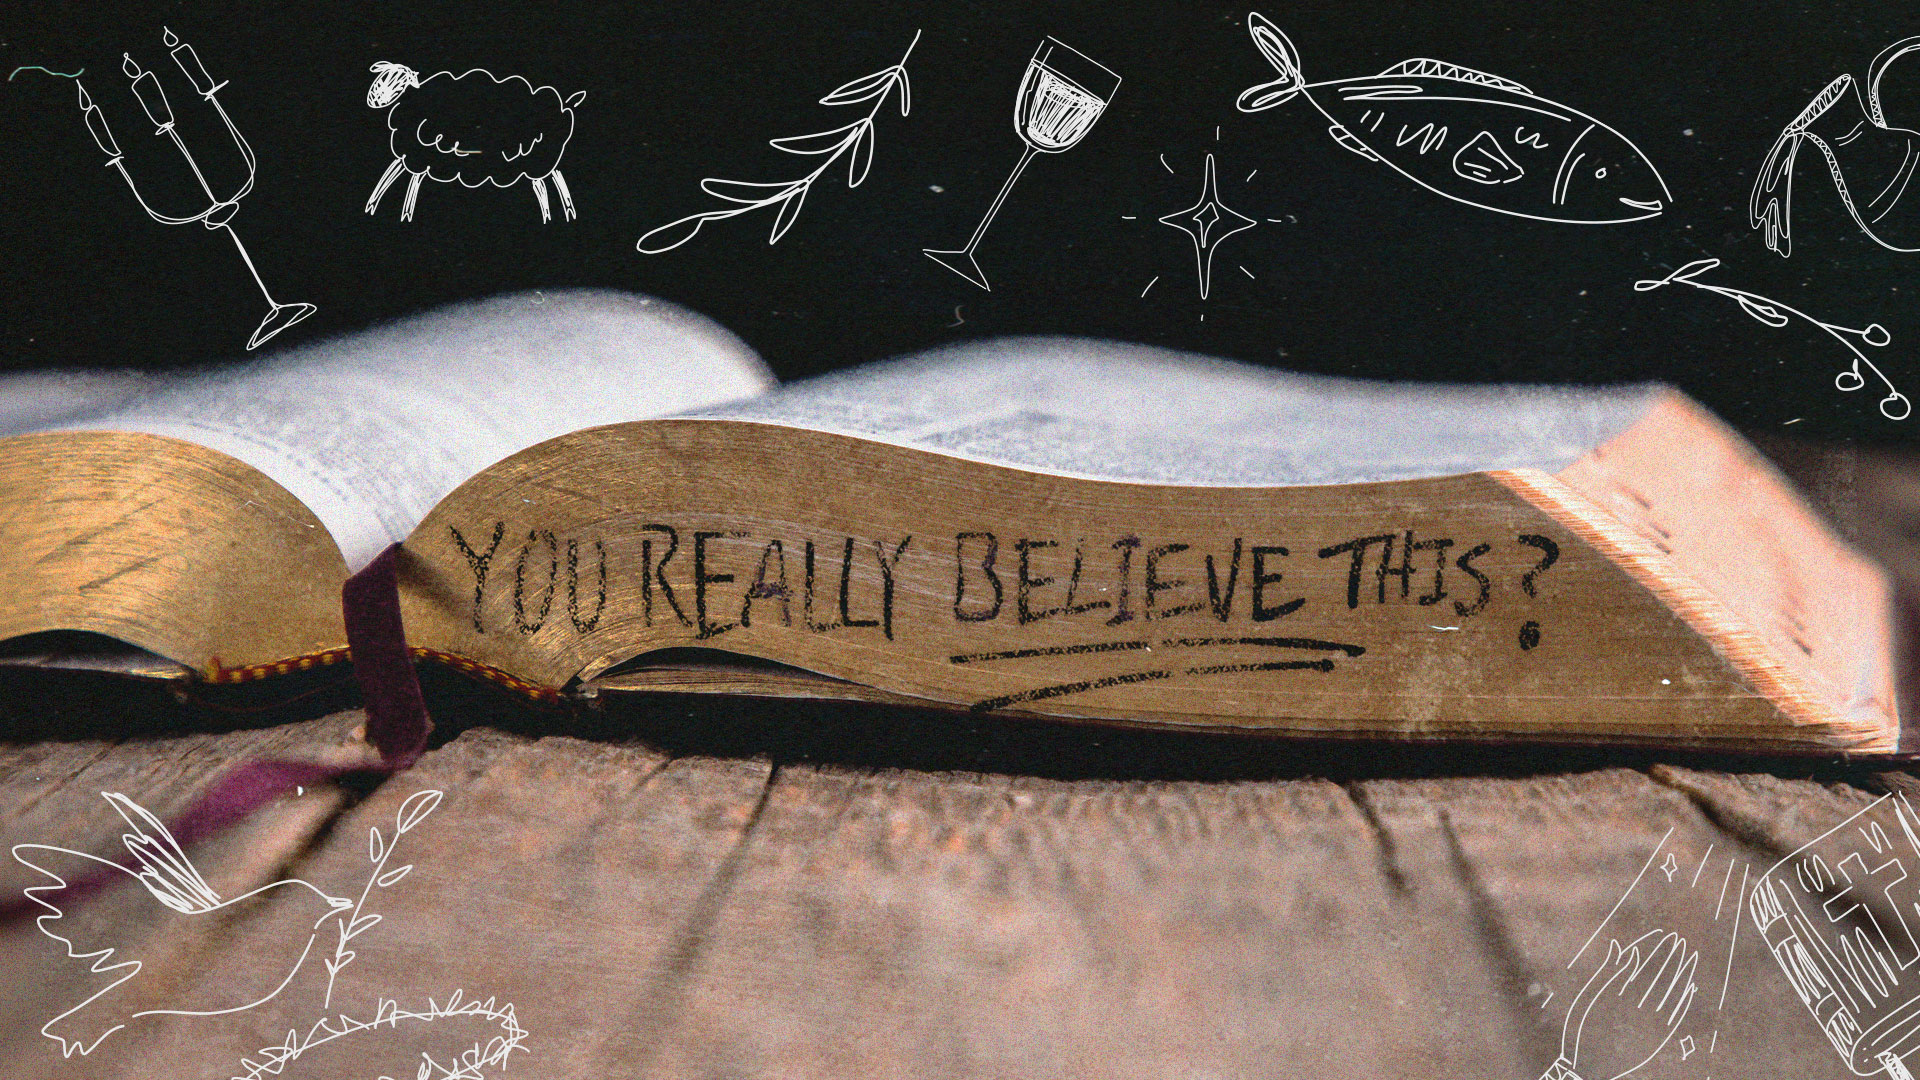 YOU REALLY BELIEVE THIS?